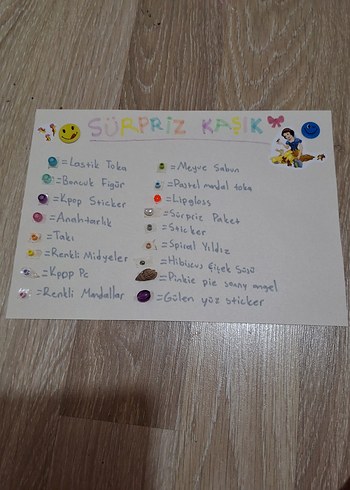 SÜRPRİZ KAŞIK
=Lastik Toka
=Boncuk Figür
=Kpop Sticker
=Anahtarlık
=Takı
=Renkli Midyeler
=Kpop Pc
=Renkli Mandallar
=Meyve Sabun
=Pastel mandal toka
=Lipgloss
=Sürpriz Paket
=Sticker
=Spiral Yıldız
=Hibiscus çiçek süsü
=Pinkie pie sonny angel
=Gülen yüz sticker